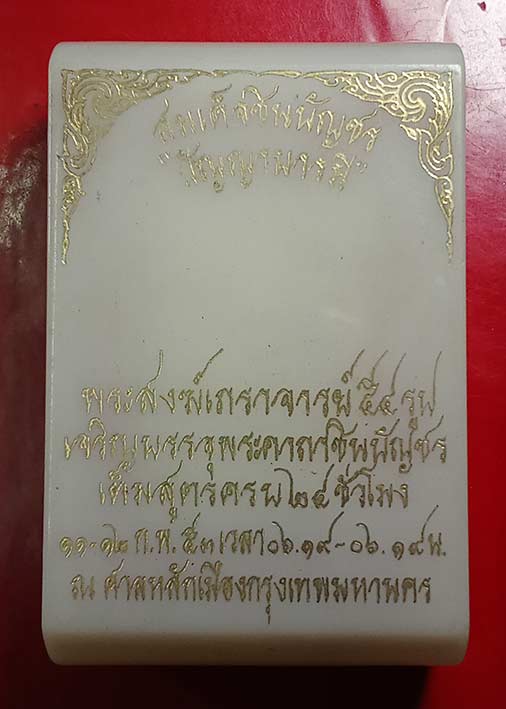 สมเด็จชินบัญชร
"ปัญญาบารมี"
พระสงฆ์เถราจารย์ ๕๔ รูป
เจริญพรรษุพระคาถาชินบัญชร
เต็มสูตรครบ ๒๔ ชั่วโมง
๑๑-๑๒ ก.พ. ๕๓ เวลา ๐๖.๑๙-๐๖.๑๙ น.
ณ ศาลหลักเมืองกรุงเทพมหานคร